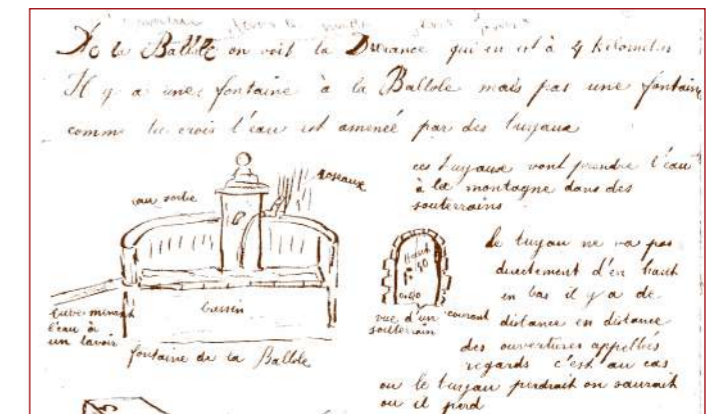 De la Ballole on voit la Durance qui en est à 4 kilometres
Il y a une fontaine à la Ballole mais pas une fontaine
comme tu crois l'eau est amenée par des tuyaux
ces tuyaux vont prendre l'eau
à la montagne dans des
souterrains
roseaux
eau sortie
bassin
tube menant
l'eau à
un lavoir
fontaine de la Ballole
Haut
1m90
0m90
vue d'un courant
souterrain
le tuyau ne va pas
directement d'en haut
en bas il y a de
distance en distance
des ouvertures appellées
regards c'est au cas
ou le tuyau perdrait on saurait
ou il perd